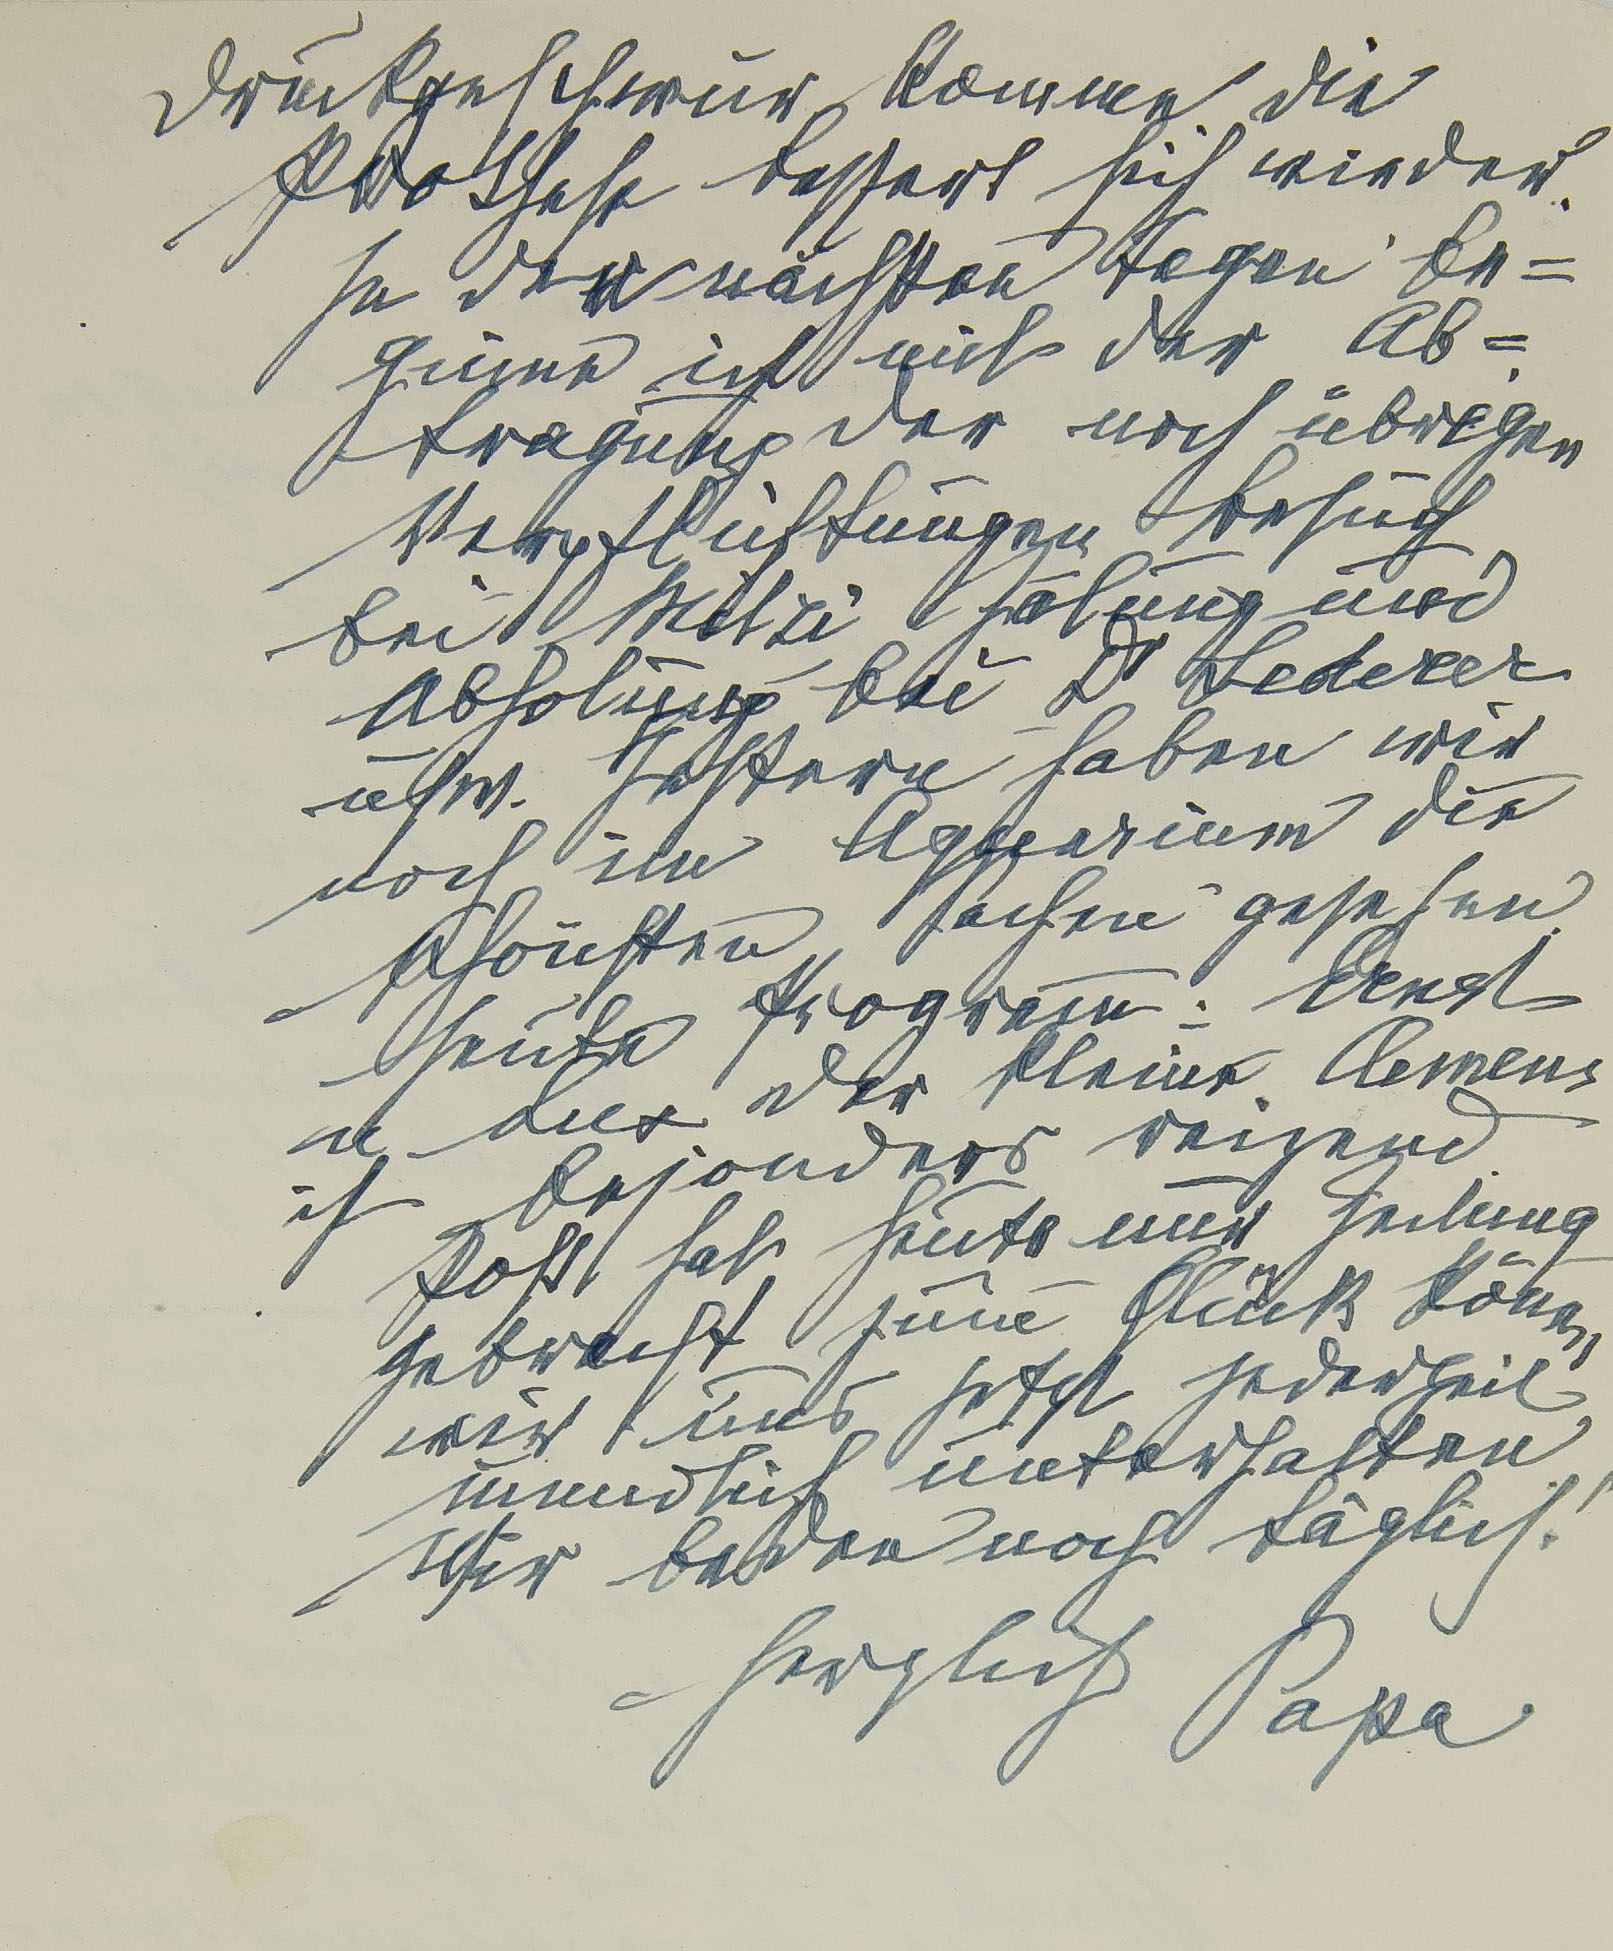 Druckgeschwür komme die
Prothese bessert sich wieder.
In den nächsten Tagen be=
ginne ich mit der Ab=
tragung der noch übrigen
Verpflichtungen Besuch
bei Mitzi und
bei Dr Lederer
usw. Gestern haben wir
noch im Aquarium die
schönsten Sachen gesehen
Heute Program:
u der kleine Clemens
ist besonders reizend
Post hat heute nur Zeitung
gebracht zum Glück können
wir uns jetzt jederzeit
mundlich unterhalten
Wir baden noch täglich!
herzlich Papa